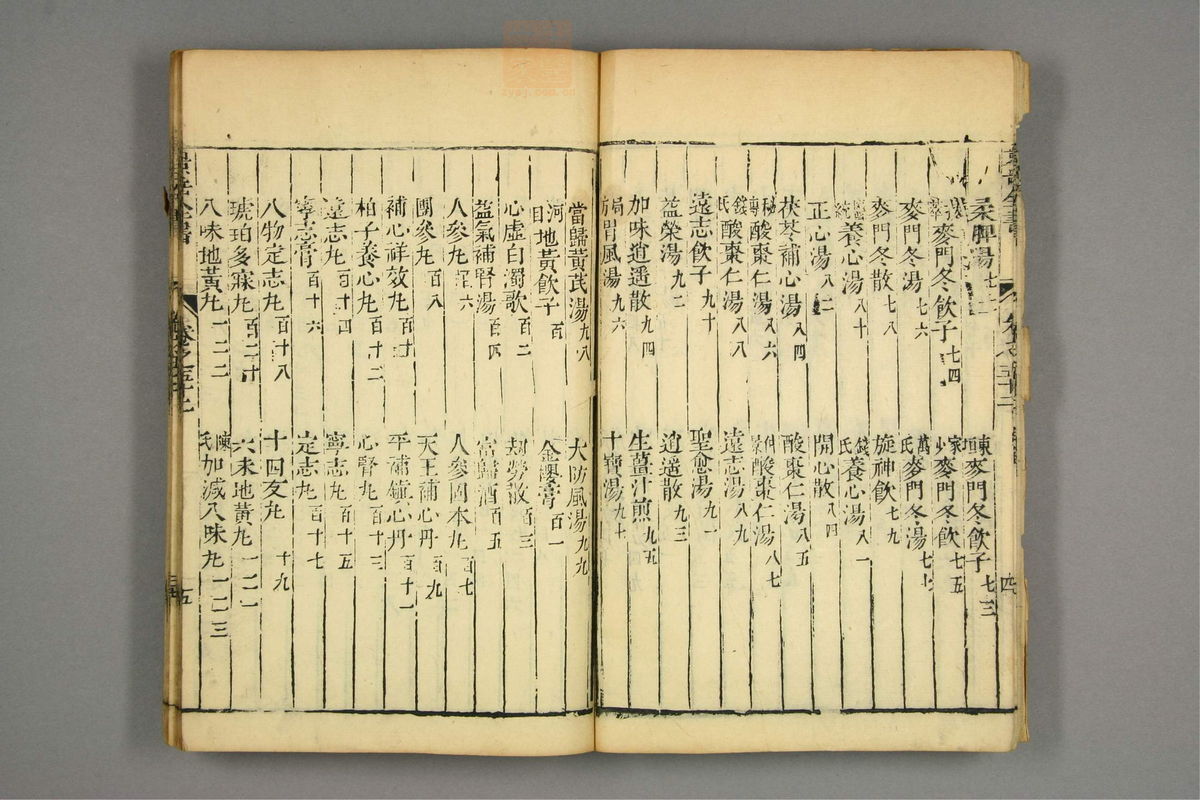 柔脾湯七二 東垣麥門冬飲子七三
麥門冬飲子七四 家少麥門冬飲七五
麥門冬湯七六 萬氏麥門冬湯七七
麥門冬散七八 旋神飲七九
統養心湯八十 錢氏養心湯八一
正心湯八二 開心散八四
茯苓補心湯八四 酸棗仁湯八五
秘傳酸棗仁湯八六 酸棗仁湯八七
錢氏酸棗仁湯八八 遠志湯八九
遠志飲子九十 聖愈湯九一
益榮湯九二 逍遥散九三
加味逍遥散九四 生薑汁煎九五
局方胃風湯九六 十寶湯九七
當歸黄芪湯九八 大防風湯九九
河間地黄飲子百 金櫻膏百一
心虛白濁歌百二 刼勞散百三
益氣補腎湯百四 當歸酒百五
人參丸百六 人參固本丸百七
團參丸百八 天王補心丹百九
補心神效丸百十 平補鎮心丹百十一
柏子養心丸百十二 心腎丸百十三
遠志丸百十四 寧志丸百十五
寧志膏百十六 定志丸百十七
八物定志丸百十八 十四友丸十九
琥珀多寐丸百二十 六味地黄丸一二一
八味地黄丸一二二 陳氏加減八味丸一二三